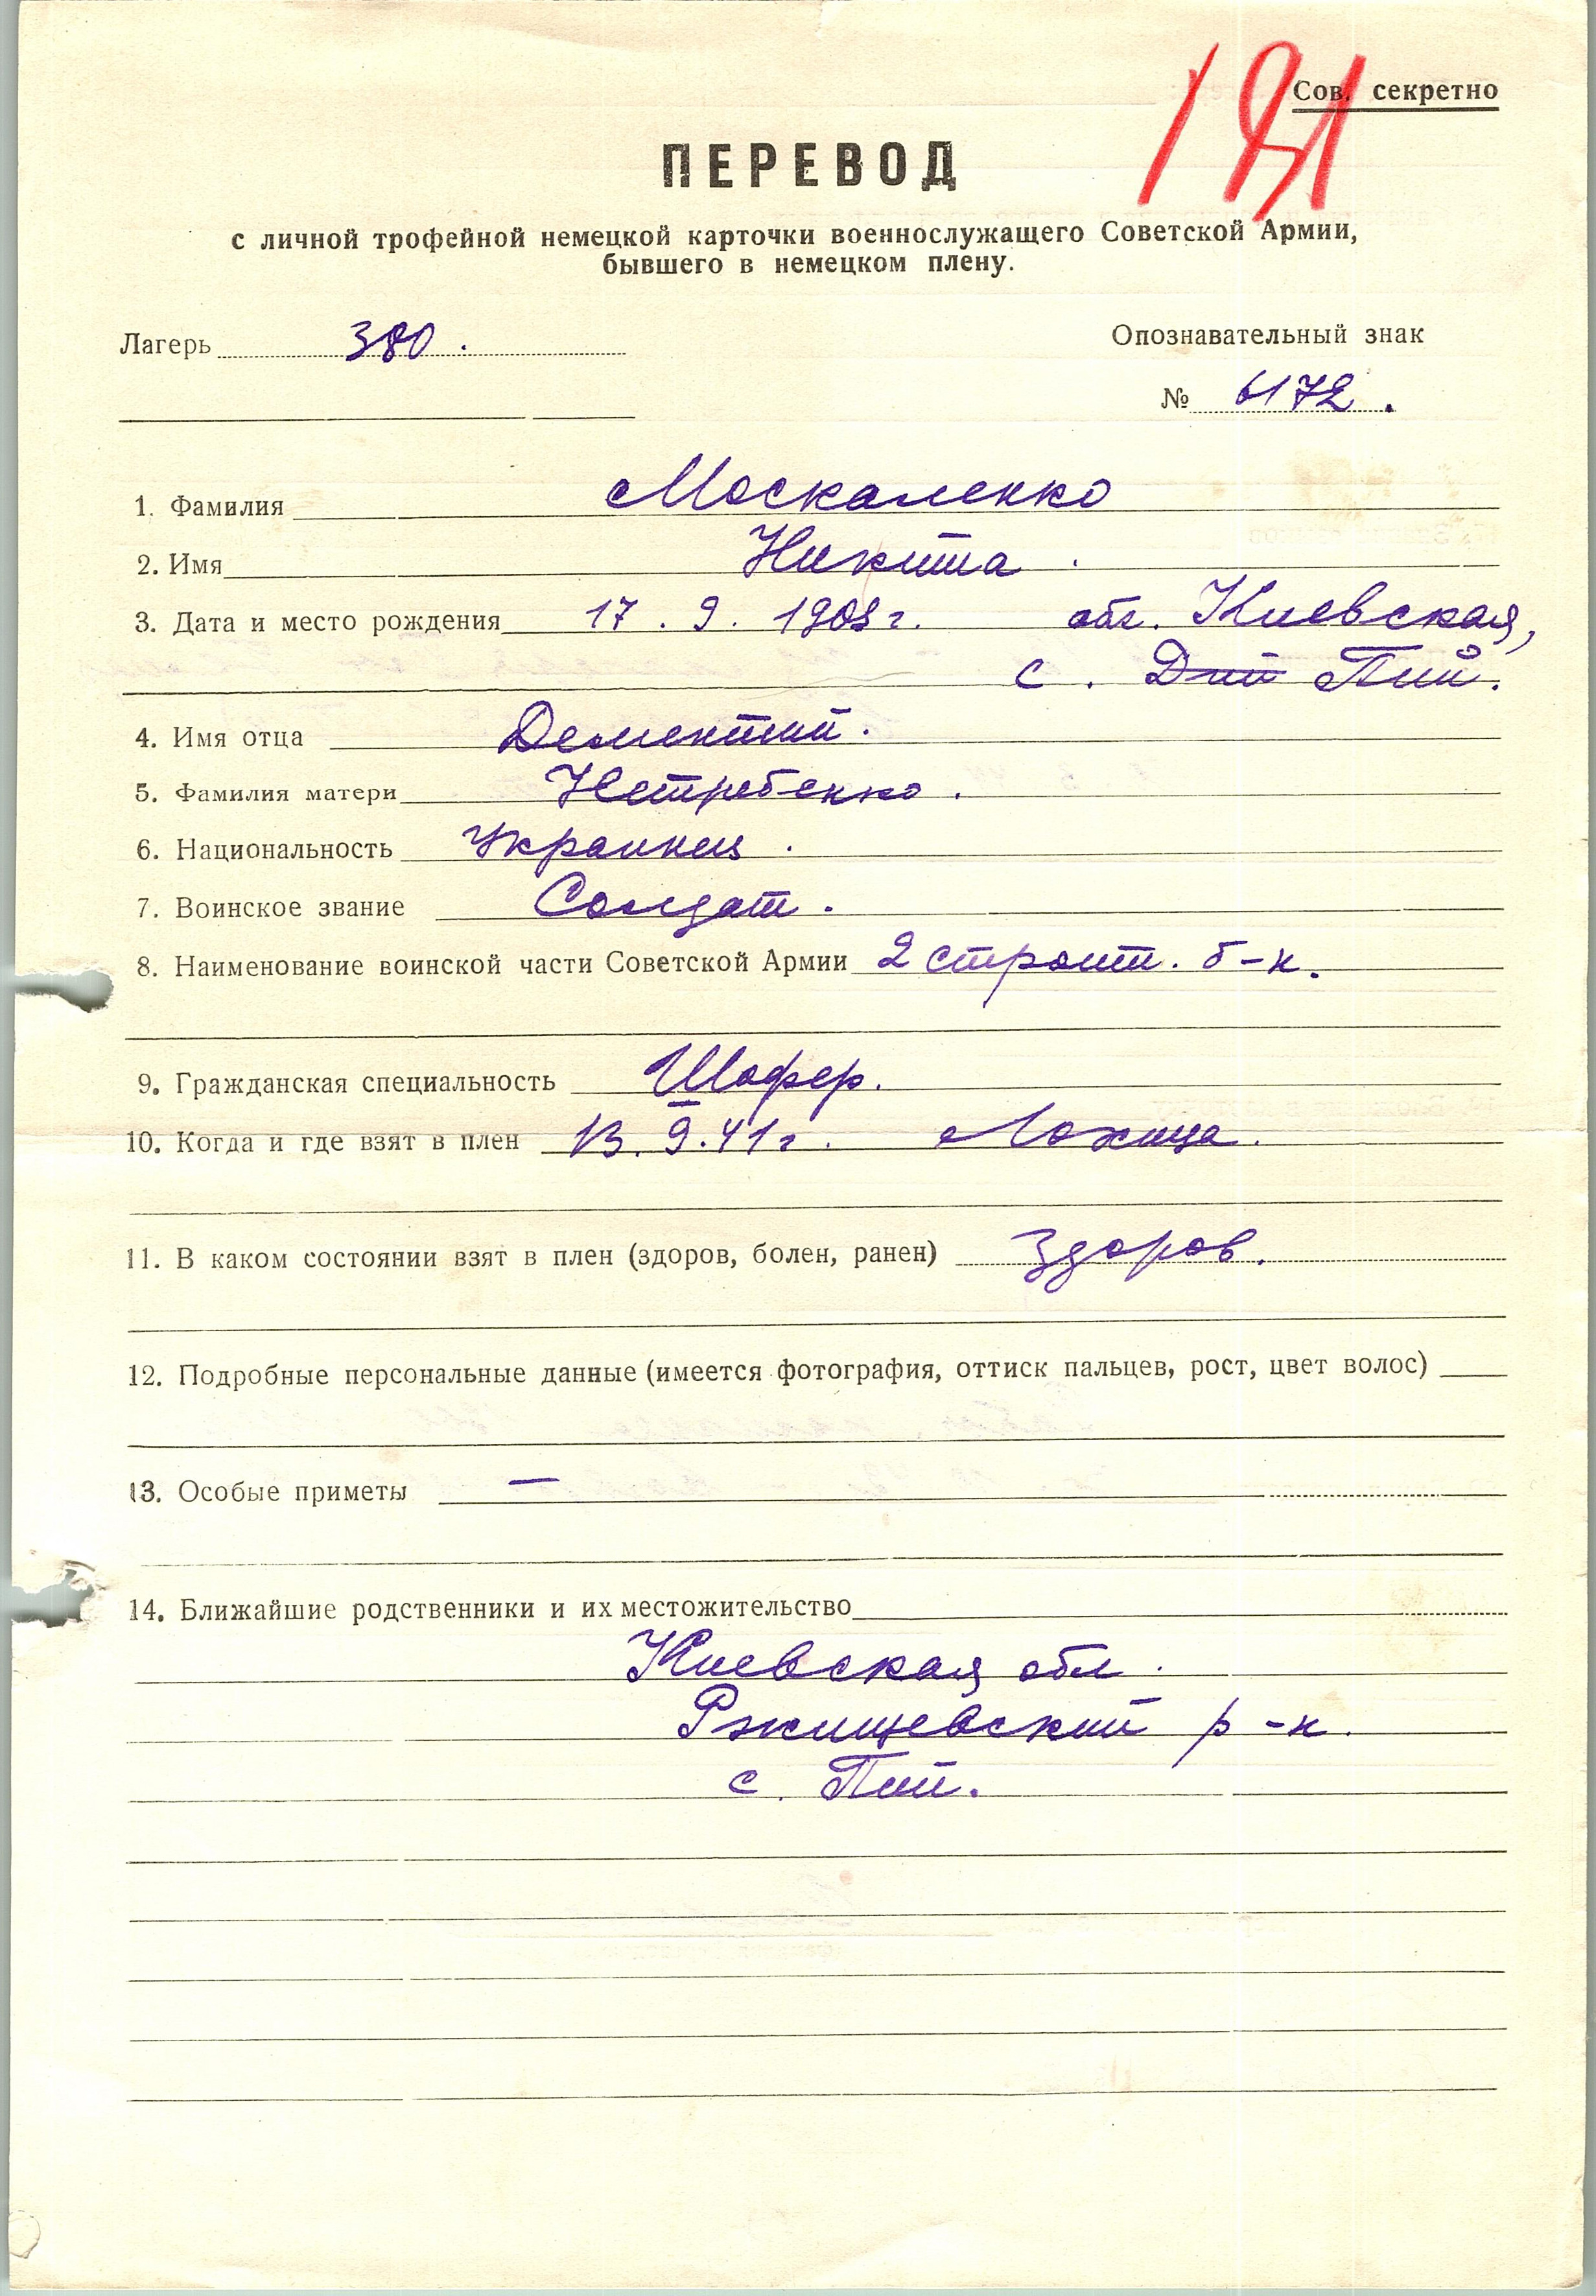 Сов. секретно
ПЕРЕВОД
с личной трофейной немецкой карточки военнослужащего Советской Армии,
бывшего в немецком плену.
Лагерь 380.
Опознавательный знак
№ 6172.
1. Фамилия Москаленко
2. Имя Никита.
3. Дата и место рождения 17. 9. 1908 г. обл. Киевская,
с. Дий Пий.
4. Имя отца Дементий.
5. Фамилия матери Нетребенко.
6. Национальность Украинец.
7. Воинское звание Солдат.
8. Наименование воинской части Советской Армии 2 строит. б-н.
9. Гражданская специальность Шофер.
10. Когда и где взят в плен 13. 9. 41 г. Лохица.
11. В каком состоянии взят в плен (здоров, болен, ранен) Здоров.
12. Подробные персональные данные (имеется фотография, оттиск пальцев, рост, цвет волос)
13. Особые приметы —
14. Ближайшие родственники и их местожительство
Киевская обл.
Ржищевский р-н.
с. Пий.